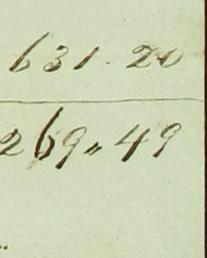 631.20
269〃49